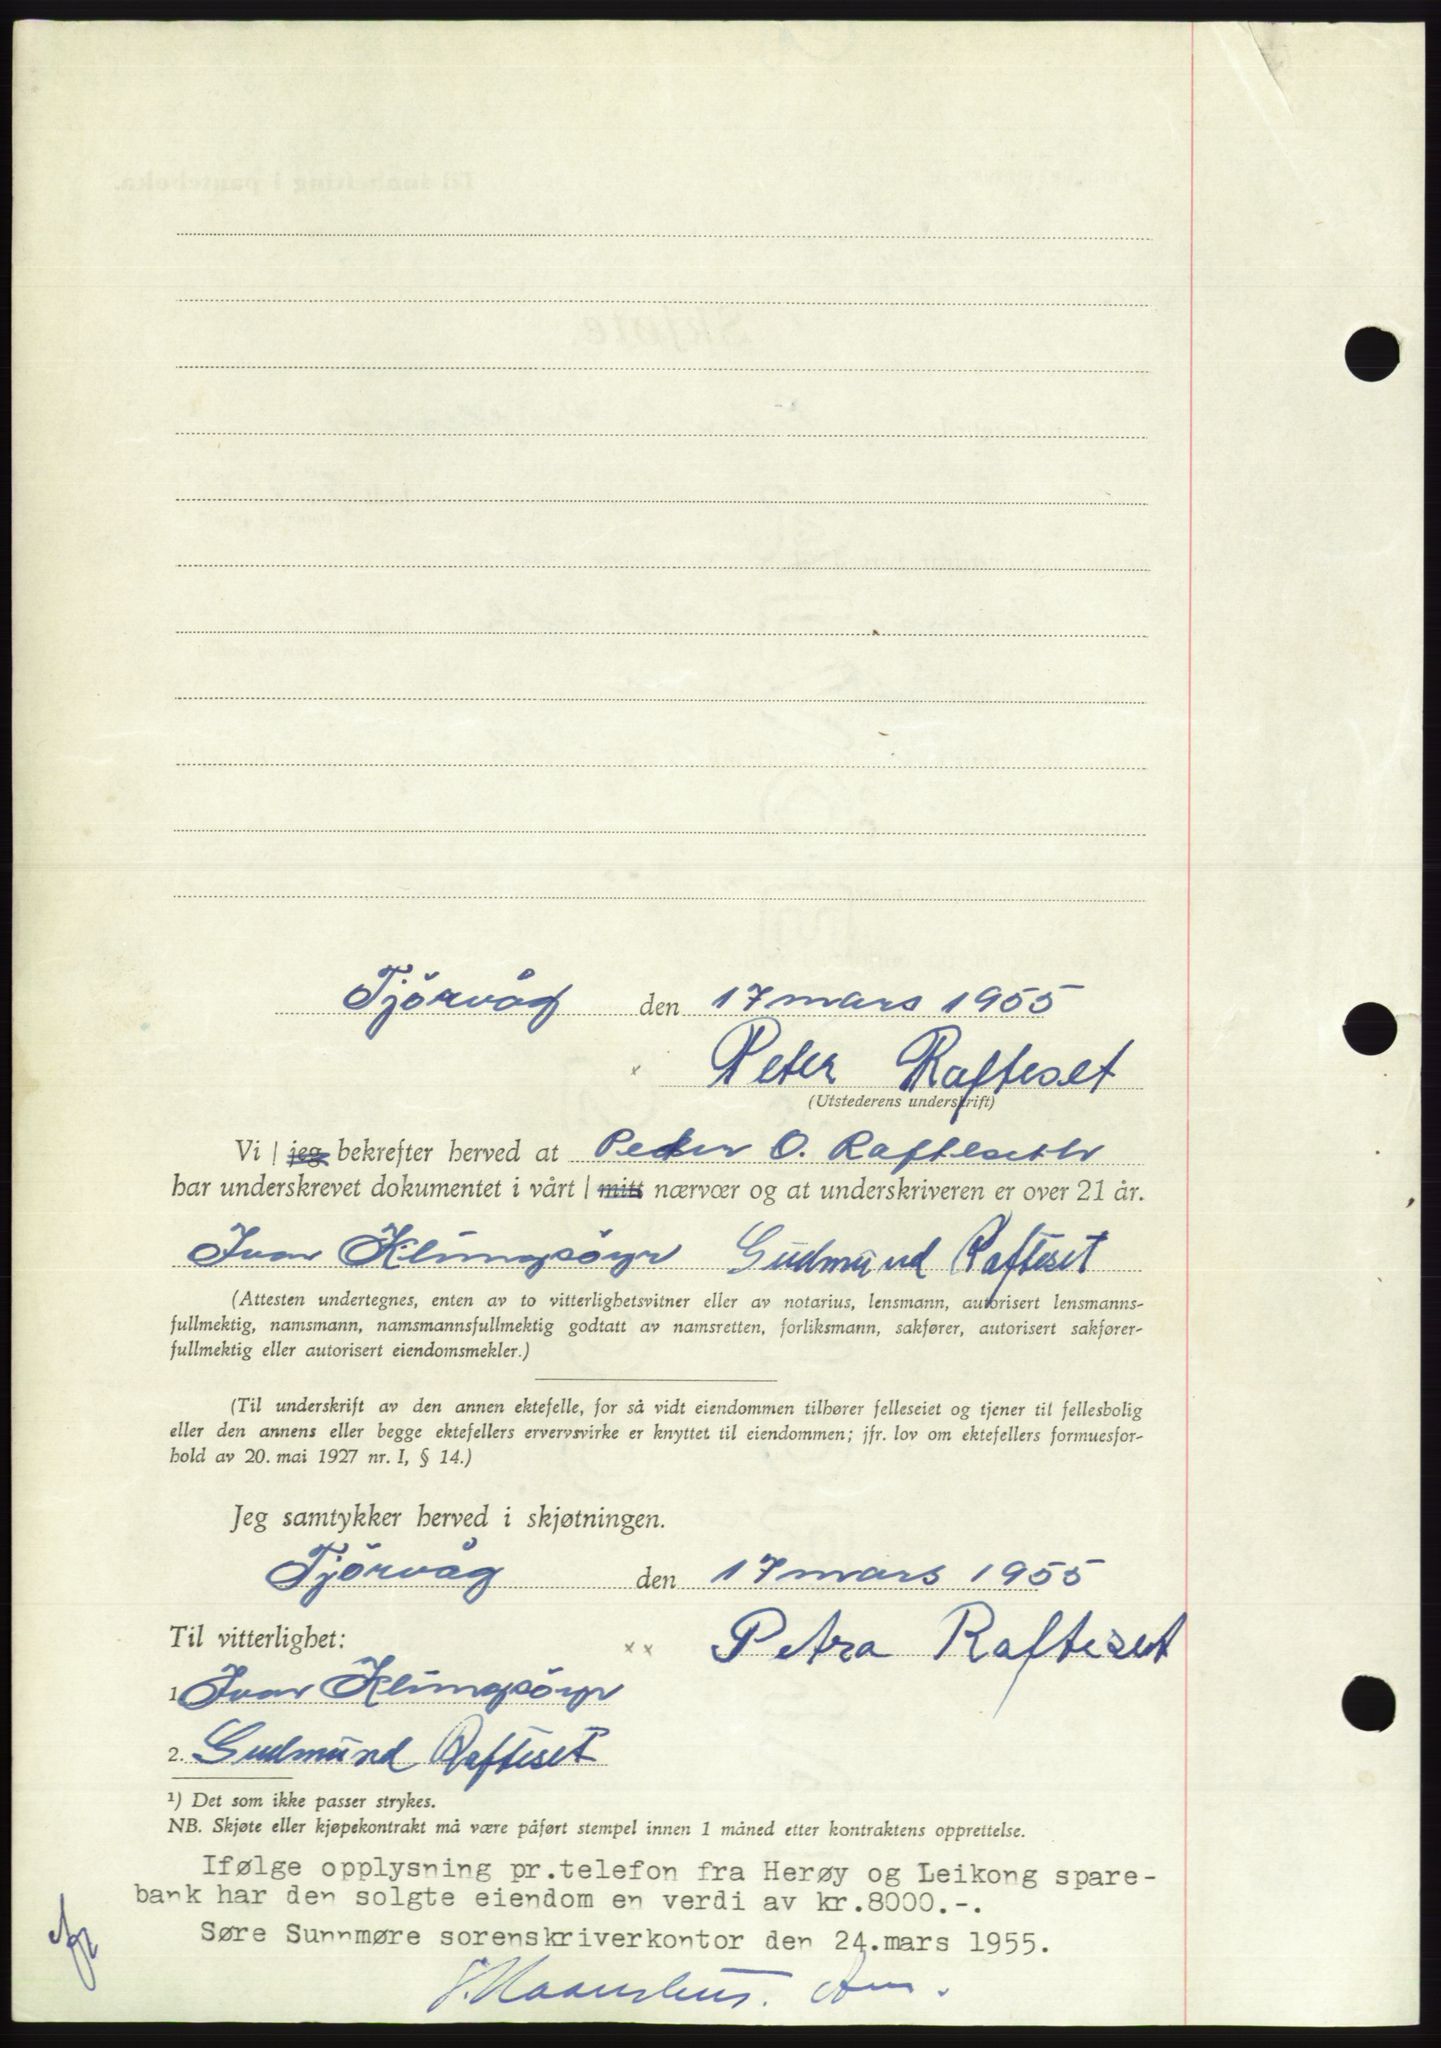 Tjörvåg den 17 mars 1955
x Peter Rafteset
(Utstederens underskrift)
Vi / jeg bekrefter herved at Peder O. Rafteseth
har underskrevet dokumentet i vårt / mitt nærvær og at underskriveren er over 21 år.
Ivar Klungsöyr Gudmund Rafteset
(Attesten undertegnes, enten av to vitterlighetsvitner eller av notarius, lensmann, autorisert lensmanns-
fullmektig, namsmann, namsmannsfullmektig godtatt av namsretten, forliksmann, sakfører, autorisert sakfører-
fullmektig eller autorisert eiendomsmekler.)
(Til underskrift av den annen ektefelle, for så vidt eiendommen tilhører felleseiet og tjener til fellesbolig
eller den annens eller begge ektefellers ervervsvirke er knyttet til eiendommen; jfr. lov om ektefellers formuesfor-
hold av 20. mai 1927 nr. I, § 14.)
Jeg samtykker herved i skjøtningen.
Tjörvåg den 17 mars 1955
Til vitterlighet: x x Petra Rafteset
1. Ivar Klungsöyr
2. Gudmund Rafteset
¹) Det som ikke passer strykes.
NB. Skjøte eller kjøpekontrakt må være påført stempel innen 1 måned etter kontraktens opprettelse.
Ifølge opplysning pr.telefon fra Herøy og Leikong spare-
bank har den solgte eiendom en verdi av kr.8000.-.
Søre Sunnmøre sorenskriverkontor den 24.mars 1955.